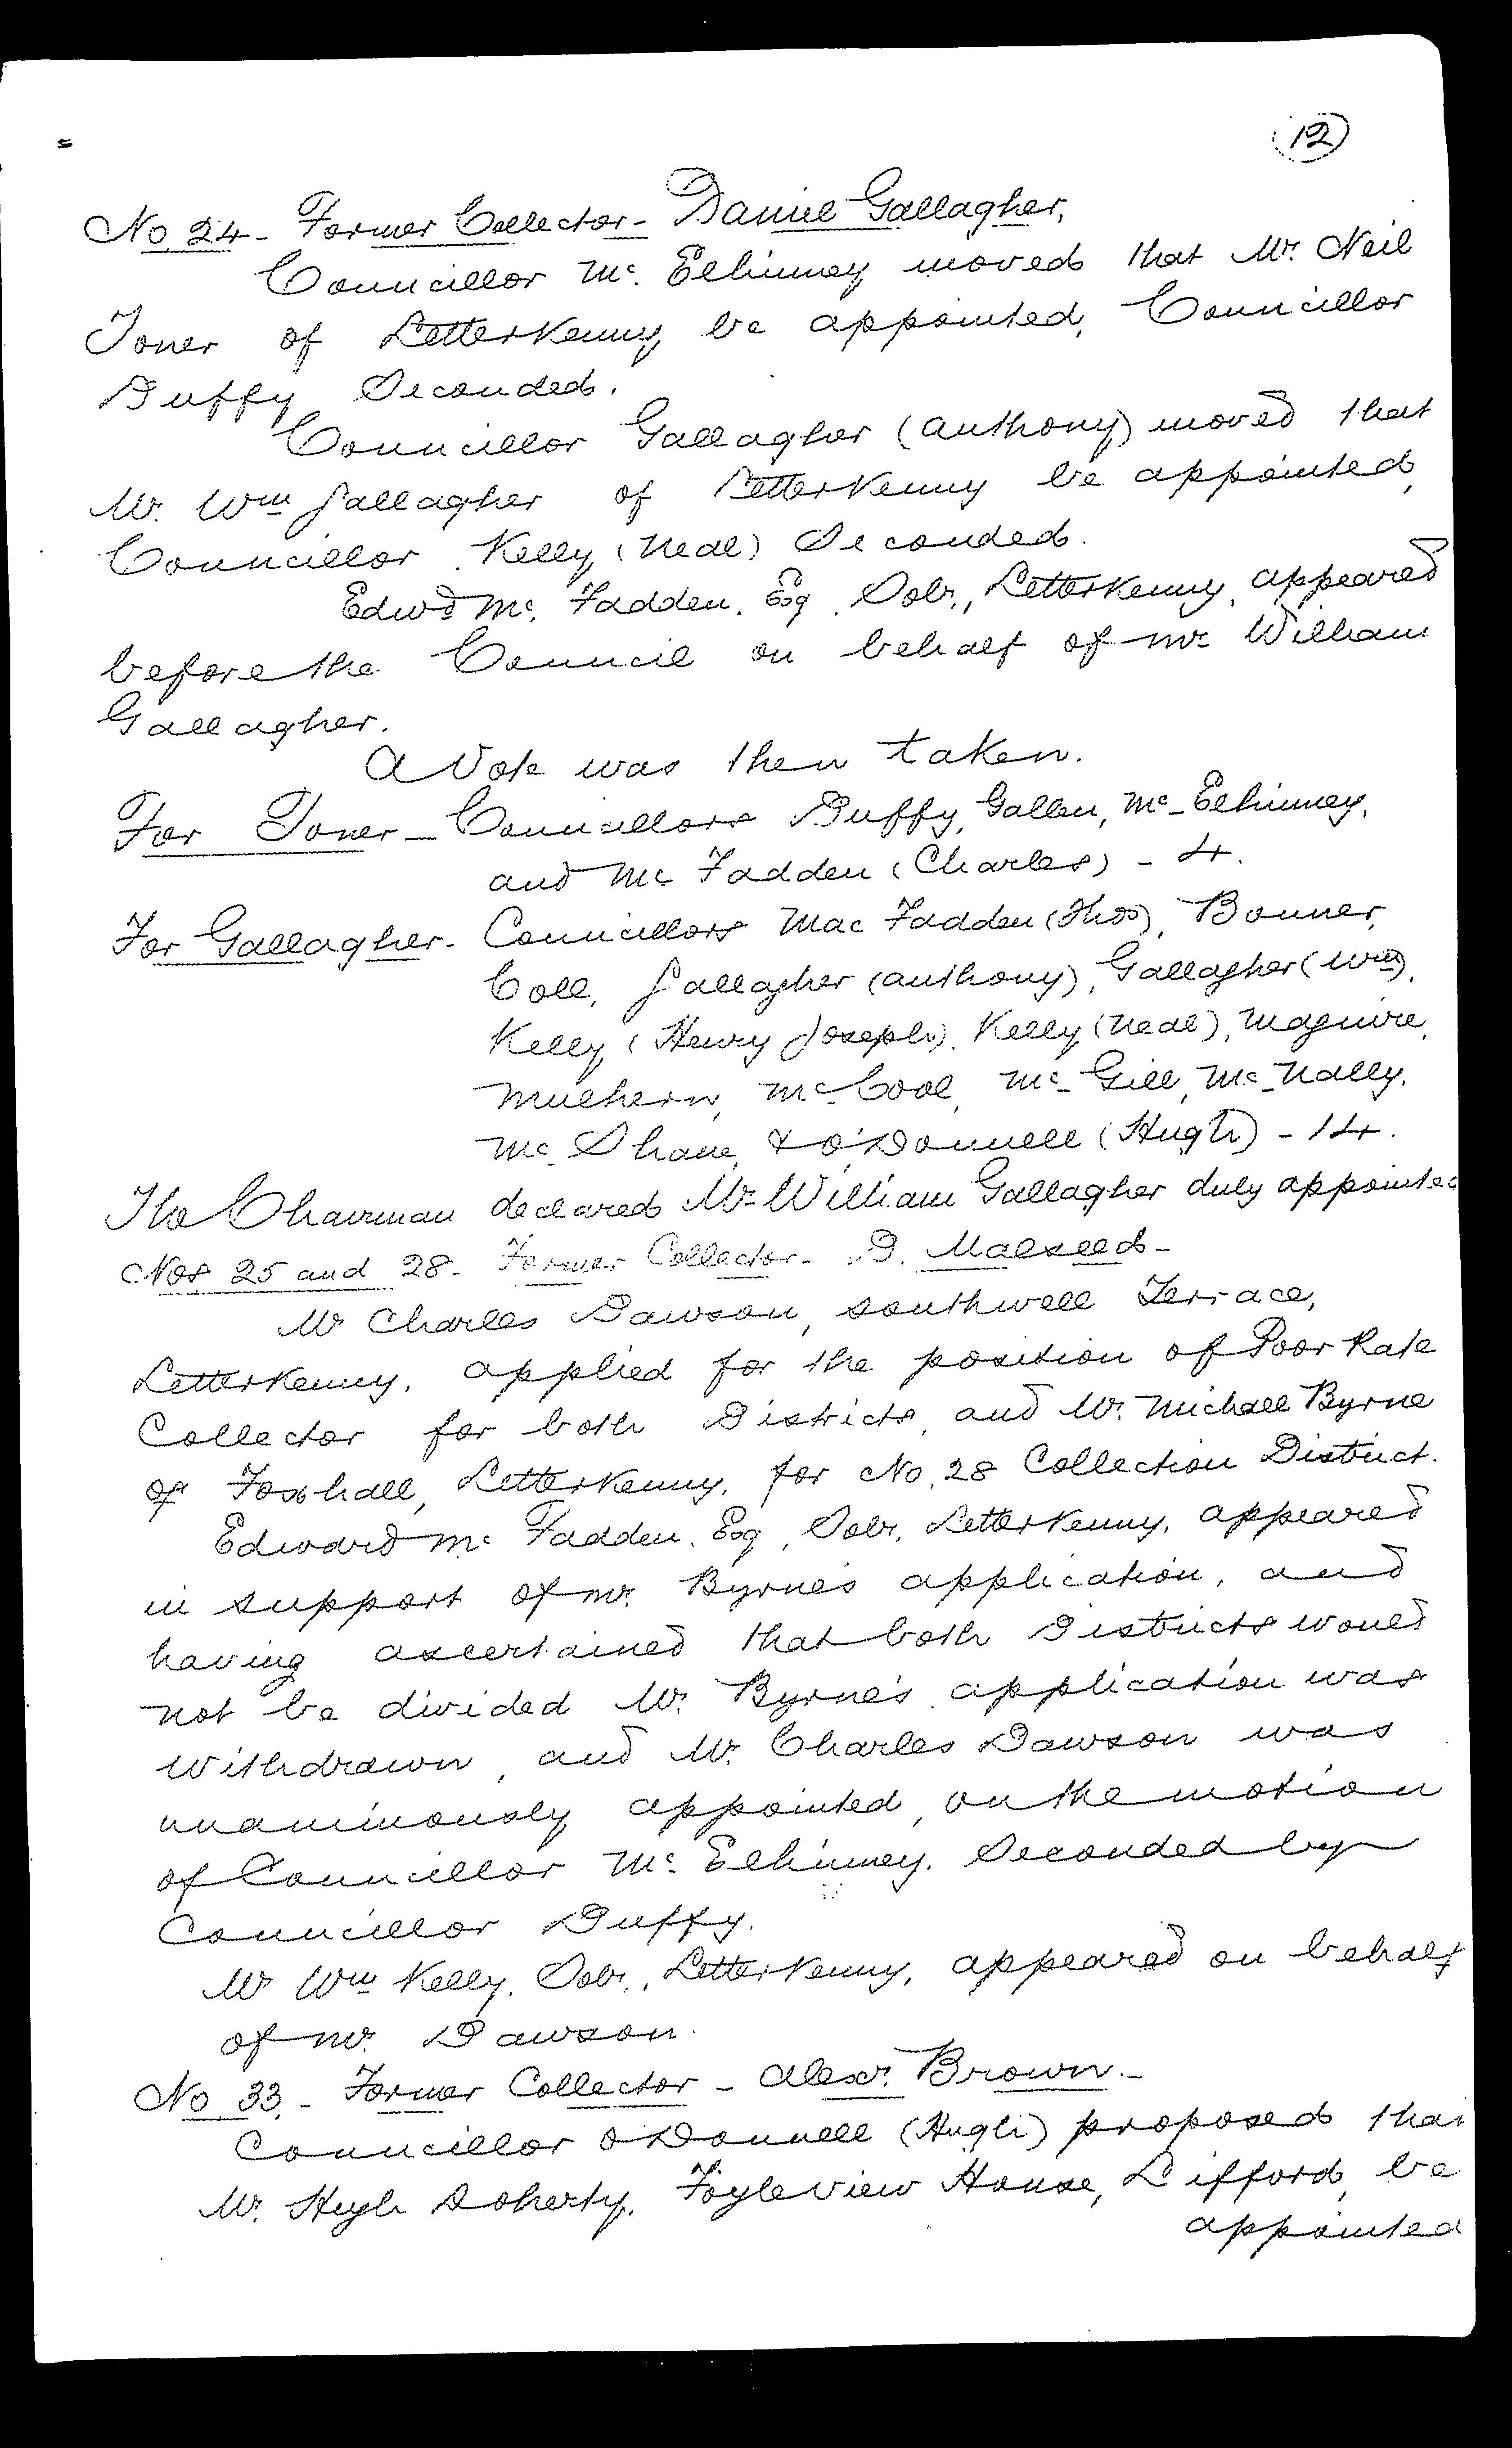 12
No 24 - Former Collector - Daniel Gallagher,
Councillor Mc. Elhinney moved that Mr. Neil
Toner of Letterkenny be appointed, Councillor
Duffy Seconded.
Councillor Gallagher (Anthony) moved that
Mr. Wm Gallagher of Letterkenny be appointed,
Councillor Kelly (Neal) Seconded.
Edwd Mc. Fadden. Esq. Solr., Letterkenny, appeared
before the Council on behalf of Mr. William
Gallagher.
A Vote was then taken.
For Toner - Councillors Duffy, Gallen, Mc-Elhinney,
and Mc Fadden (Charles) - 4.
For Gallagher - Councillors Mac Fadden (Thos), Bonner,
Coll, Gallagher (Anthony), Gallagher (Wm),
Kelly (Henry Joseph), Kelly (Neal), Maguire,
Mulhern, Mc-Cool, Mc-Gill, Mc-Nally,
Mc-Shane, & O'Donnell (Hugh) - 14.
The Chairman declared Mr. William Gallagher duly appointed
Nos 25 and 28 - Former Collector - D. Malseed -
Mr Charles Dawson, Southwell Terrace,
Letterkenny, applied for the position of Poor Rate
Collector for both Districts, and Mr. Michael Byrne
of Foxhall, Letterkenny, for No. 28 Collection District.
Edward Mc Fadden. Esq, Solr, Letterkenny, appeared
in support of Mr. Byrne's application, and
having ascertained that both Districts would
not be divided Mr. Byrne's application was
withdrawn, and Mr. Charles Dawson was
unanimously appointed, on the motion
of Councillor Mc. Elhinney. Seconded by
Councillor Duffy.
Mr Wm Kelly, Solr., Letterkenny, appeared on behalf
of Mr. Dawson.
No 33. - Former Collector - Alexr. Brown. -
Councillor O'Donnell (Hugh) proposed that
Mr. Hugh Doherty, Foyleview House, Lifford, be
appointed